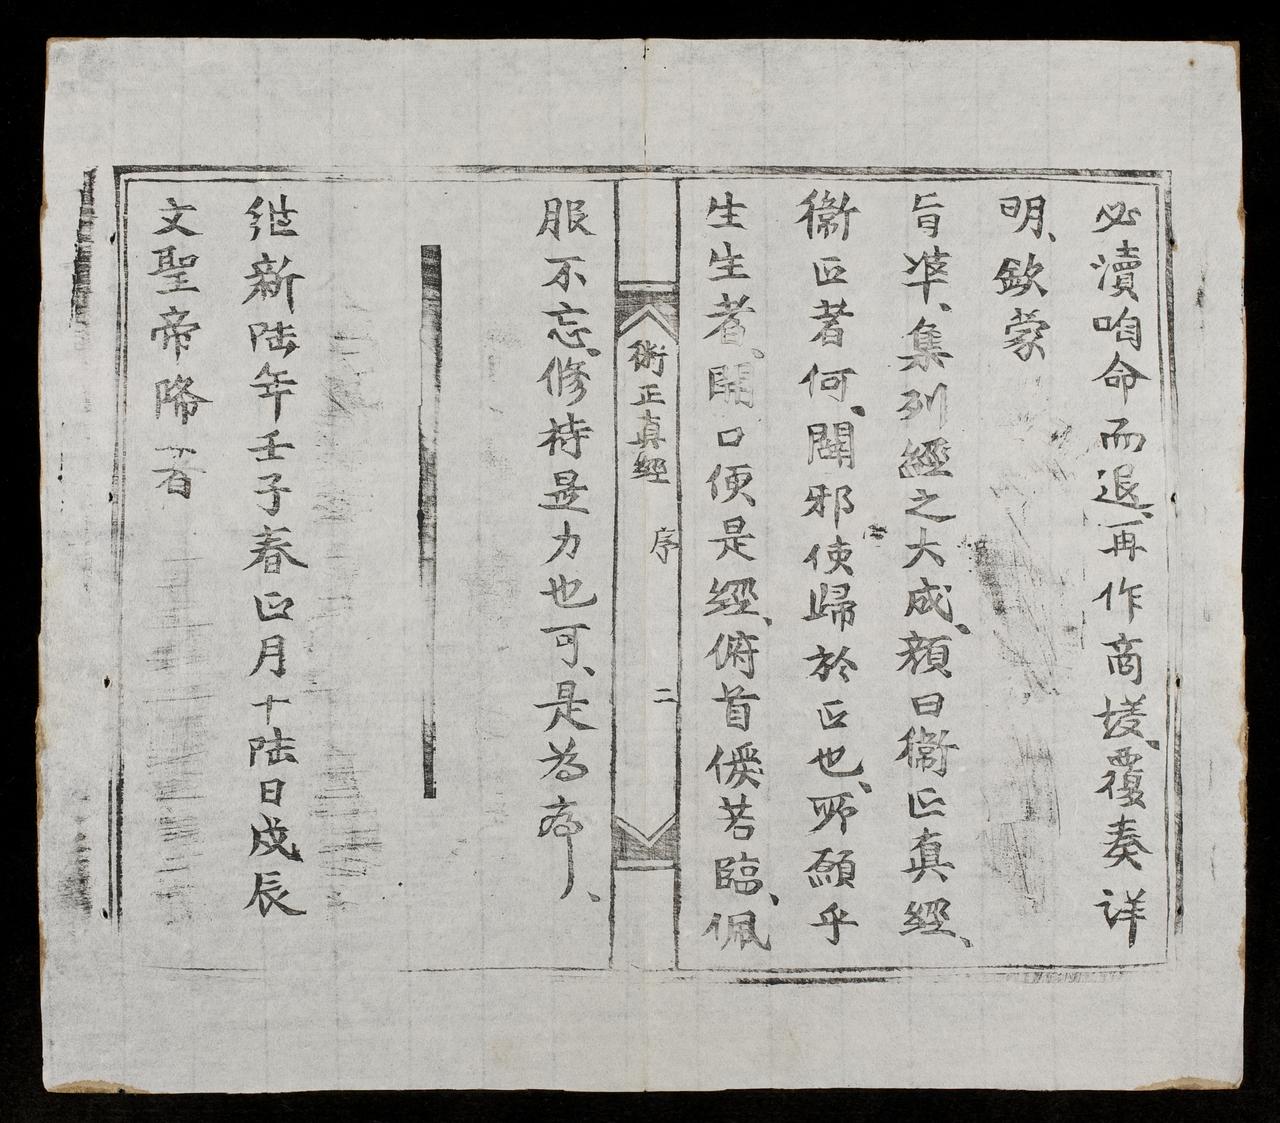 必瀆咱命而退、再作商 、覆奏详
明、欽蒙
旨準、集列經之大成、顔曰衞正真經、
衞正者何、闢邪使歸於正也、所願乎
生生者、開口便是經、俯首儼若臨、佩
術正真經 序 二
服不忘、修持是力也可、是為序、
維新陸年壬子春正月十陸日戊辰
文聖帝降著